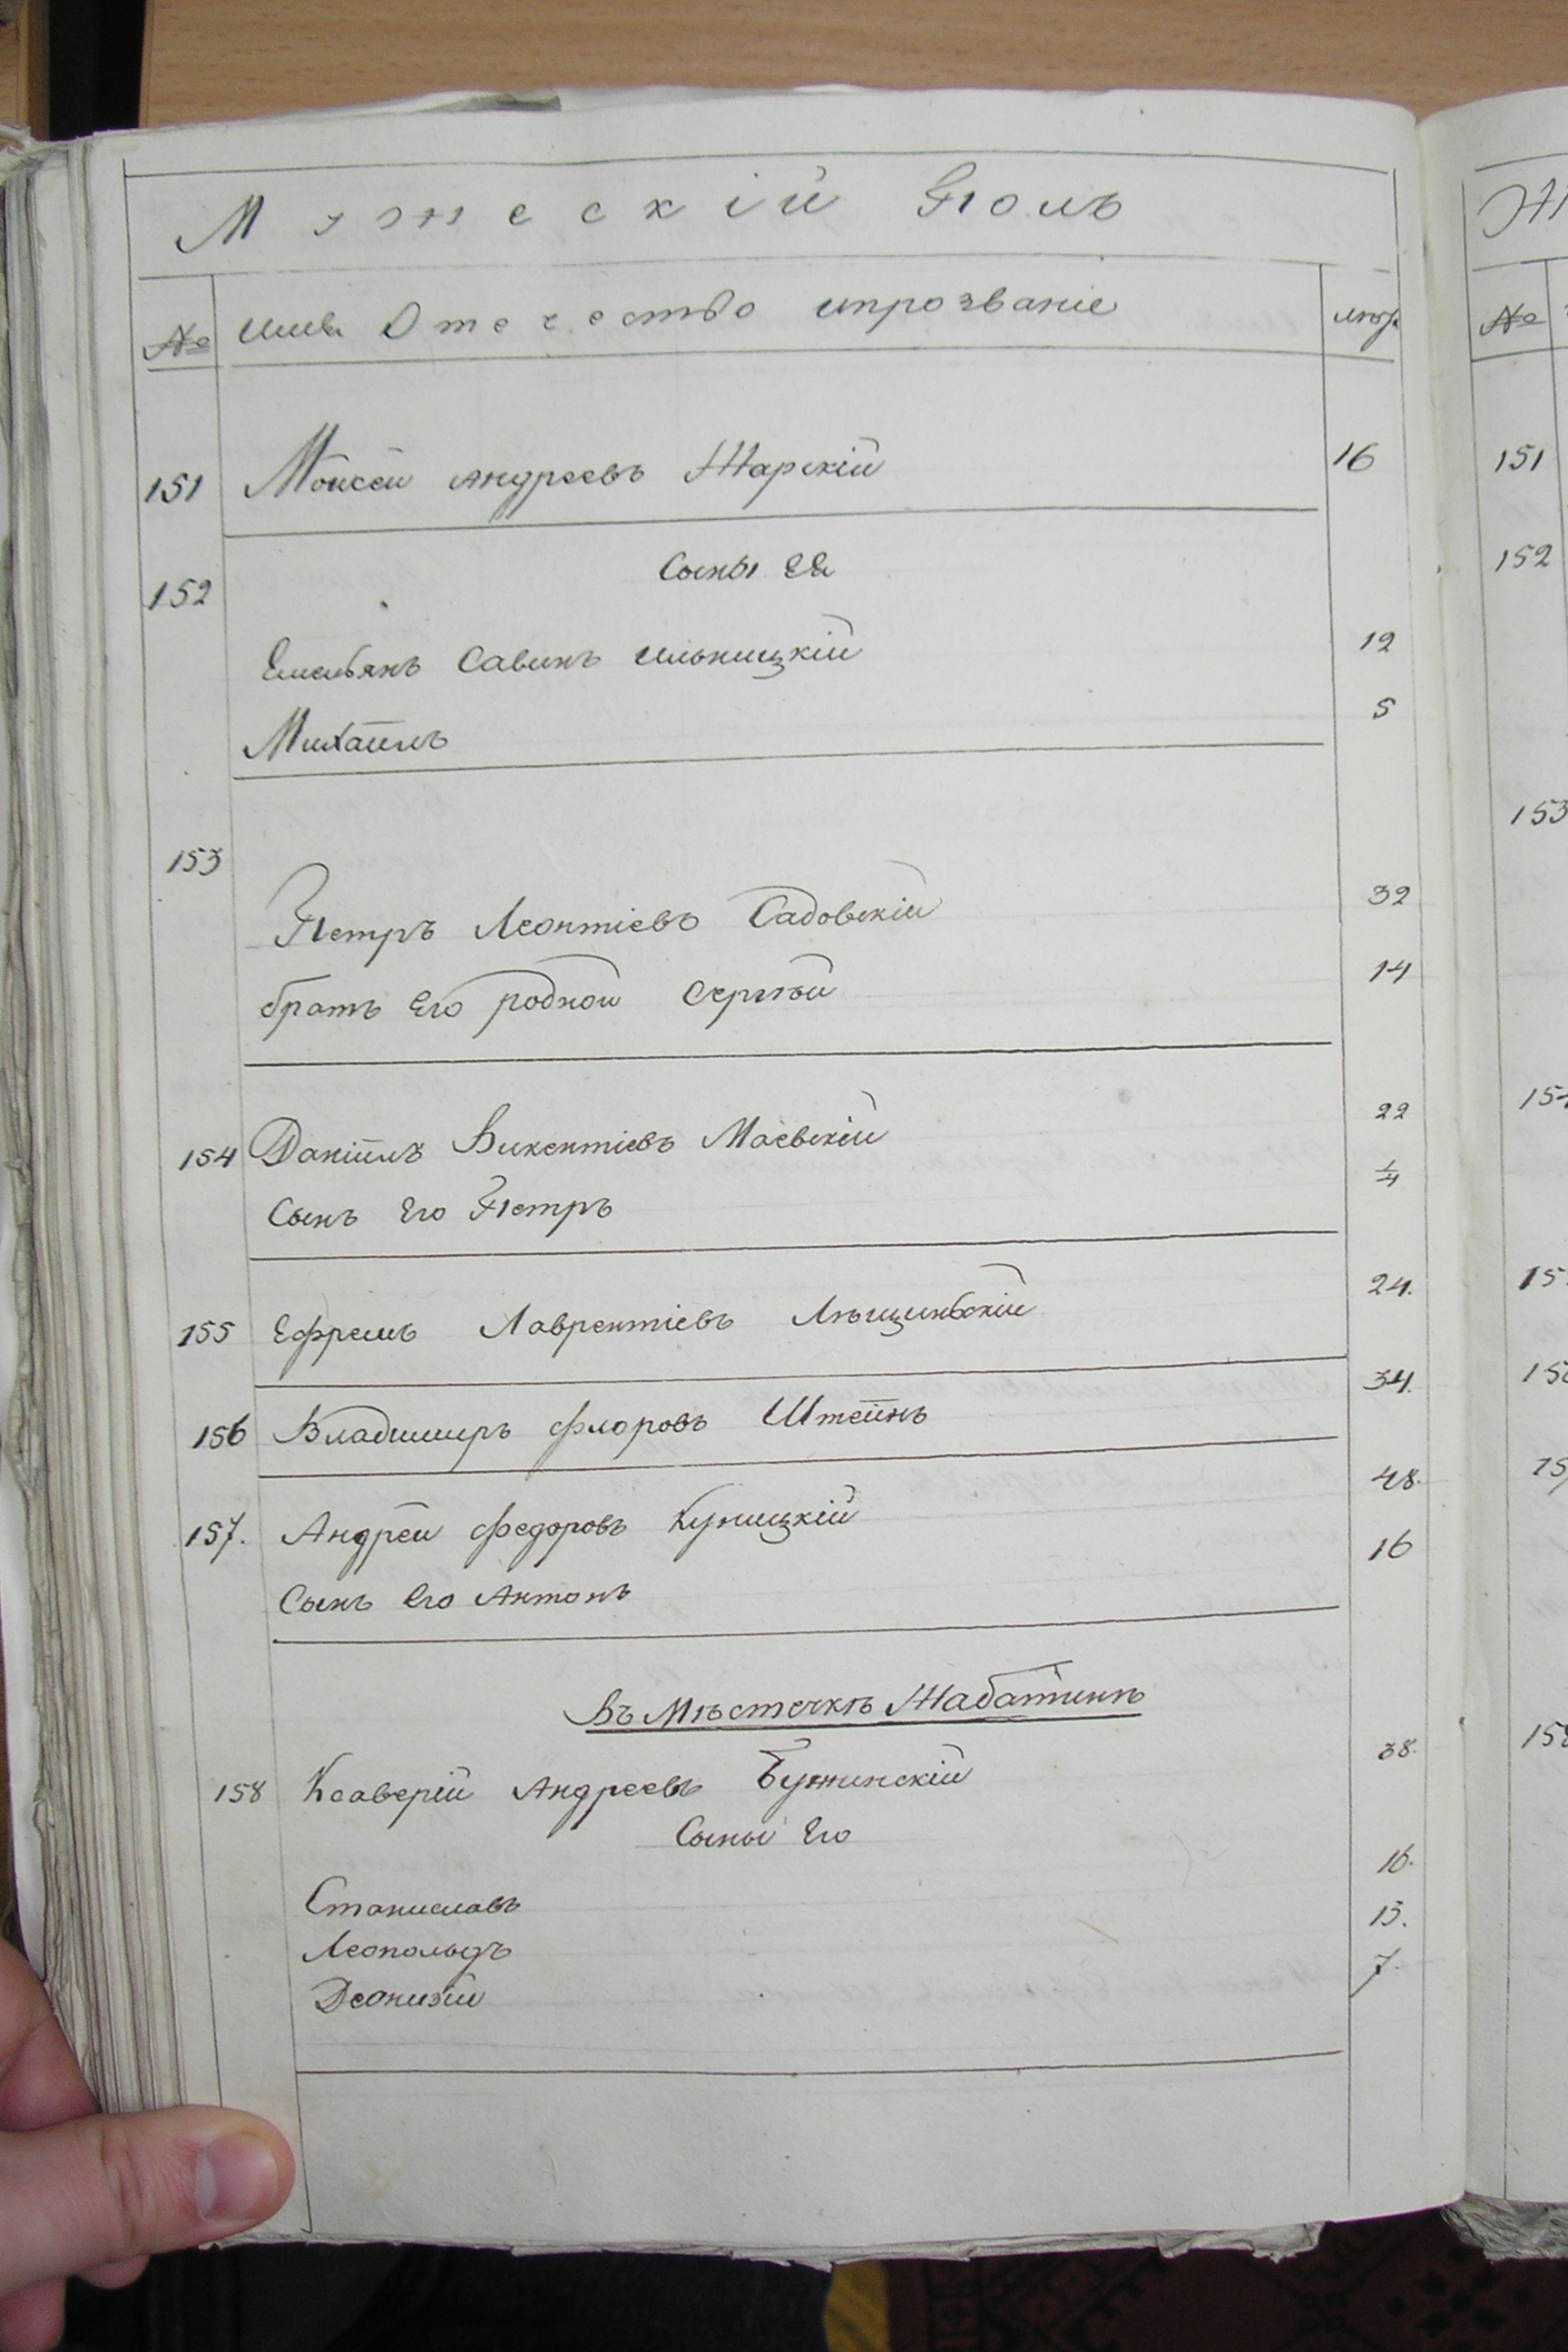 Мужескій Полъ
№ имя Отечество ипрозваніе лѣта
151 Моисей Андреевъ Жарскій 16
152 Сыны Ея
Емельянъ Савинъ Ильницкій 12
Михаилъ 5
153
Петръ Леонтіевъ Садовскій 32
братъ Его родной Сергѣй 14
154 Даніилъ Викентіевъ Маевскій 22
Сынъ Его Петръ 1/4
155 Ефремъ Лаврентіевъ Лѣщинскій 24.
156 Владимиръ Флоровъ Штейнъ 34.
157. Андрей Федоровъ Куницкій 48.
Сынъ Его Антонъ 16
Въ Мѣстечкѣ Жаботинѣ
158 Ксаверій Андреевъ Бужинскій 38.
Сыны Его
Станиславъ 16.
Леопольдъ 13.
Деонизій 7.
№
151
152
153